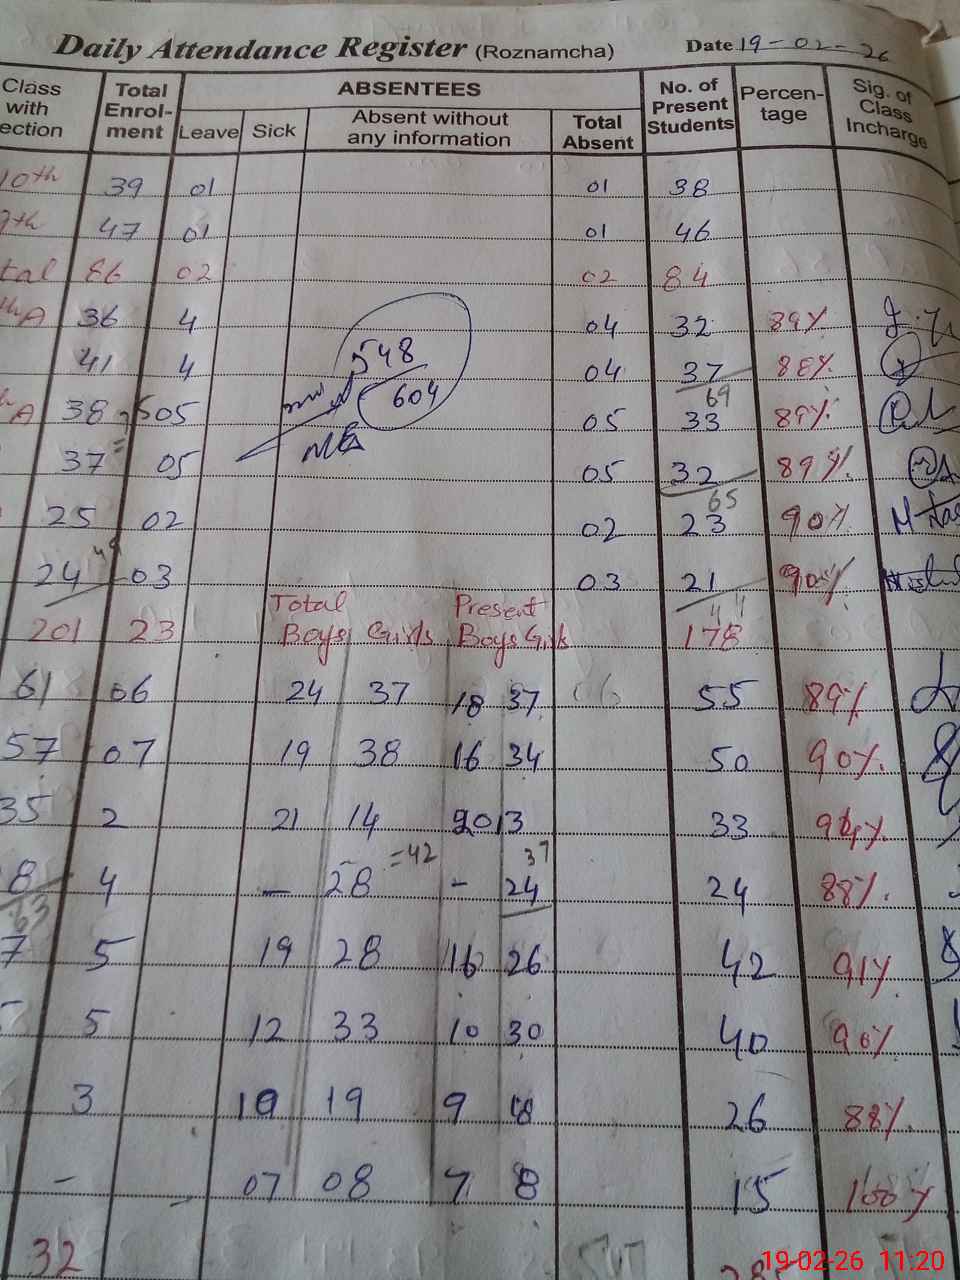 Daily Attendance Register (Roznamcha) Date 19-02-26
Class with ection Total Enrol-ment ABSENTEES No. of Present Students Percen-tage Sig. of Class Incharge
Leave Sick Absent without any information Total Absent
10th 39 01 01 38
9th 47 01 01 46
tal 86 02 02 84
A 36 4 04 32 89%
41 4 548 04 37 88%
604 69
A 38 05 05 33 89%
37 05 05 32 89%
65
25 02 02 23 90%
24 49 03 03 21 90%
44
Total Present
201 23 Boys Girls Boys Girls 178
61 06 24 37 18 37 06 55 89%
57 07 19 38 16 34 50 90%
35 2 21 14 20 13 33 94%
=42 37
8 4 - 28 - 24 24 88%
63
7 5 19 28 16 26 42 91%
5 12 33 10 30 40 90%
3 10 19 9 26 88%
- 07 08 7 8 15 100%
32
19-02-26 11:20